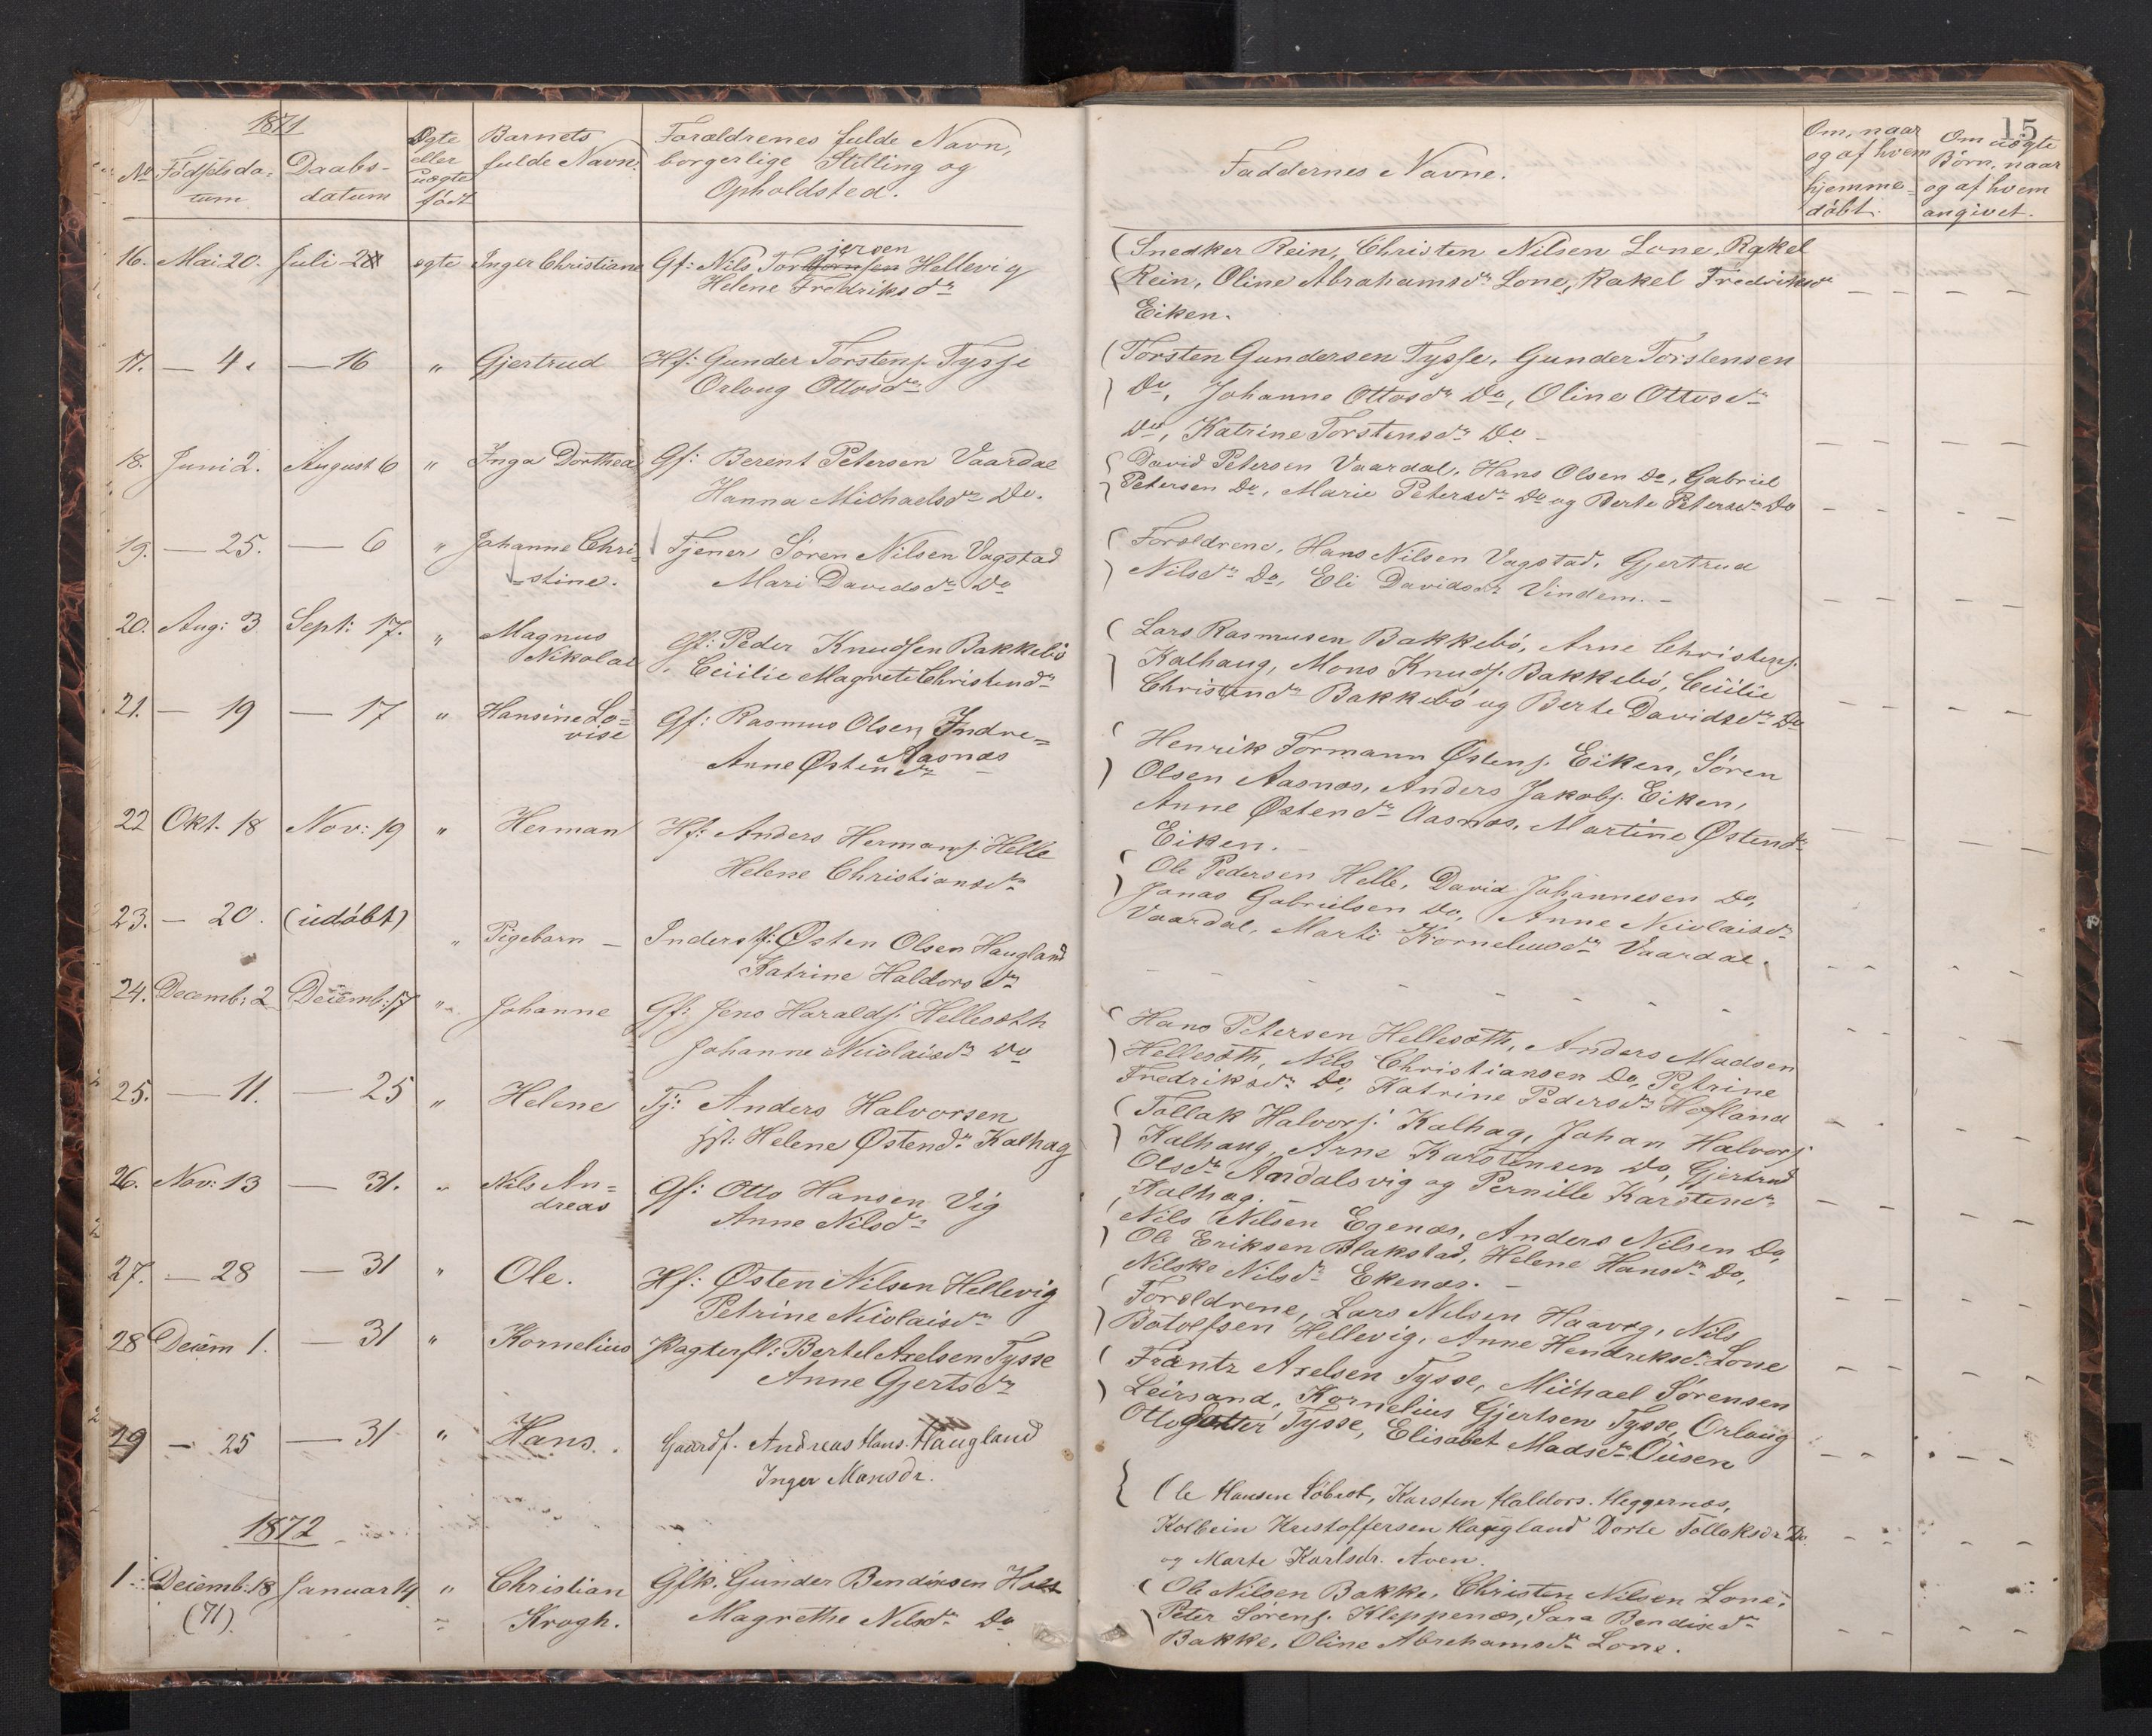 15
1871
No
Födselsda=
tum
Daabs-
datum
Ægte
eller
uægte
födt
Barnets
fulde Navn.
Forældrenes fulde Navn,
borgerlige Stilling og
Opholdsted.
Faddernes Navne.
Om, naar
og af hvem
hjemme-
döbt.
Om uægte
Börn, naar
og af hvem
angivet.
16. Mai 20. Juli 2 ægte Inger Christiane Gf: Nils Torbjørnsen Hellevig
jersen
Helene Fredriksdr
(Snedker Rein, Christen Nilsen Lone, Rakel
Rein, Oline Abrahamsdr Lone, Rakel Fredriksdr
Eiken.
17. — 4. — 16 " Gjertrud Hf: Gunder Torstens. Tysse
Orloug Ottosdr
(Torsten Gundersen Tysse, Gunder Torstensen
Do, Johanne Ottosdr Do, Oline Ottosdr
Do, Katrine Torstensdr Do —
18. Juni 2. August 6 " Inga Dorthea Gf: Berent Petersen Vaardal
Hanna Michaelsdr Do.
David Petersen Vaardal, Hans Olsen Do, Gabriel
Petersen Do, Marie Petersdr Do og Berte Petersdr Do
19. — 25. — 6 " Johanne Chri-
stine.
Tjener Sören Nilsen Vagstad
Mari Davidsdr Do
(Forældrene, Hans Nilsen Vagstad, Gjertrud
Nilsdr Do, Eli Davidsdr Vindem. —
20. Aug: 3 Sept: 17. " Magnus
Nikolai
Gf: Peder Knudsen Bakkebö
Cecilie Magrete Christensdr
(Lars Rasmusen Bakkebö, Arne Christens.
Kalhaug, Mons Knuds. Bakkebö, Cecilie
Christensdr Bakkebö og Berte Davidsdr Do
21. — 19 — 17 " Hansine Lo=
vise
Gf: Rasmus Olsen Indre=
Aasnæs
Anne Østensdr
(Henrik Formann Østens. Eiken, Sören
Olsen Aasnæs, Anders Jakobs. Eiken,
Anne Østensdr Aasnæs, Martine Østensdr
Eiken.
22 Okt. 18 Nov: 19 " Herman Hf: Anders Hermans. Helle
Helene Christiansdr
Ole Pedersen Helle, David Johannesen Do,
Jonas Gabrielsen Do, Anne Nicolaisdr
Vaardal, Marti Korneliusdr Vaardal.
23. — 20. (udöbt) " Pigebarn — Inderst: Østen Olsen Haugland
Katrine Haldorsdr
24. Decemb: 2 Decemb: 17 " Johanne Gf: Jens Haralds. Hellesøth
Johanne Nicolaisdr Do
(Hans Petersen Hellesøth, Anders Madsen
Hellesøth, Nils Christiansen Do, Petrine
Fredriksdr Do, Katrine Pedersdr Hofland
25. — 11. — 25 " Helene Tj: Anders Halvorsen
Helene Østensdr Kalhag
(Tollak Halvors. Kalhag, Johan Halvors.
Kalhaug, Arne Karstensen Do, Gjertrud
Olsdr Aandalsvig og Pernille Karstensdr
Kalhag. —
26. Nov: 13 — 31. " Nils An=
dreas
Gf: Otto Hansen Vig
Anne Nilsdr
(Nils Nilsen Egenæs, Anders Nilsen Do,
Ole Eriksen Blakstad, Helene Hansdr Do,
Nilske Nilsdr Ekenæs. —
27. — 28 — 31 " Ole. Hf: Østen Nilsen Hellevig
Petrine Nicolaisdr
(Forældrene, Lars Nilsen Haavæg, Nils
Botolfsen Hellevig, Anne Hendriksdr Lone
28 Decem 1. — 31 " Kornelius Pagterfl: Bertel Axelsen Tysse
Anne Gjertsdr
(Frantz Axelsen Tysse, Michael Sörensen
Leirsand, Kornelius Gjertsen Tysse, Orloug
Ottosdatter Tysse, Elisabet Madsdr Ousen
29 — 25 — 31 " Hans. Gaardf. Andreas Hans. Haugland
Inger Monsdr.
Ole Hansen Söbröt, Karsten Haldors. Heggernæs,
Kolbein Kristoffersen Haugland Dorte Tollaksdr Do.
og Marte Karlsdr. Aven.
1872
1. Decemb: 18 Januar 14 " Christian
(71) Krogh.
Gflk. Gunder Bendixsen Holt
Magrethe Nilsdr Do
(Ole Nilsen Bakke, Christen Nilsen Lone,
Peter Sörens. Kleppenæs, Sara Bendixdr
Bakke, Oline Abrehamsdr Lone.